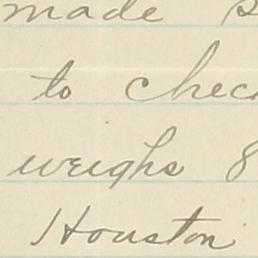 made s
to chec
weighs 8
Houston